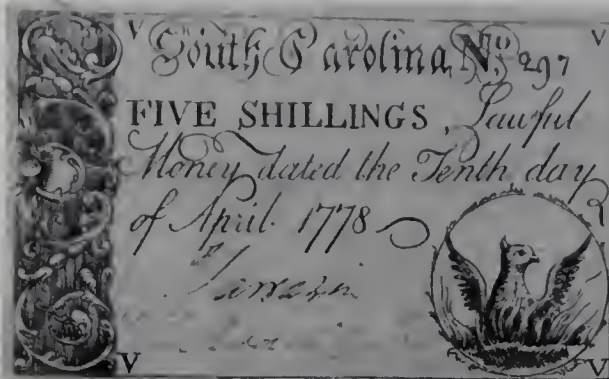 V South Carolina, No. 297 V
FIVE SHILLINGS, Lawful
Money dated the Tenth day
of April 1778
V V